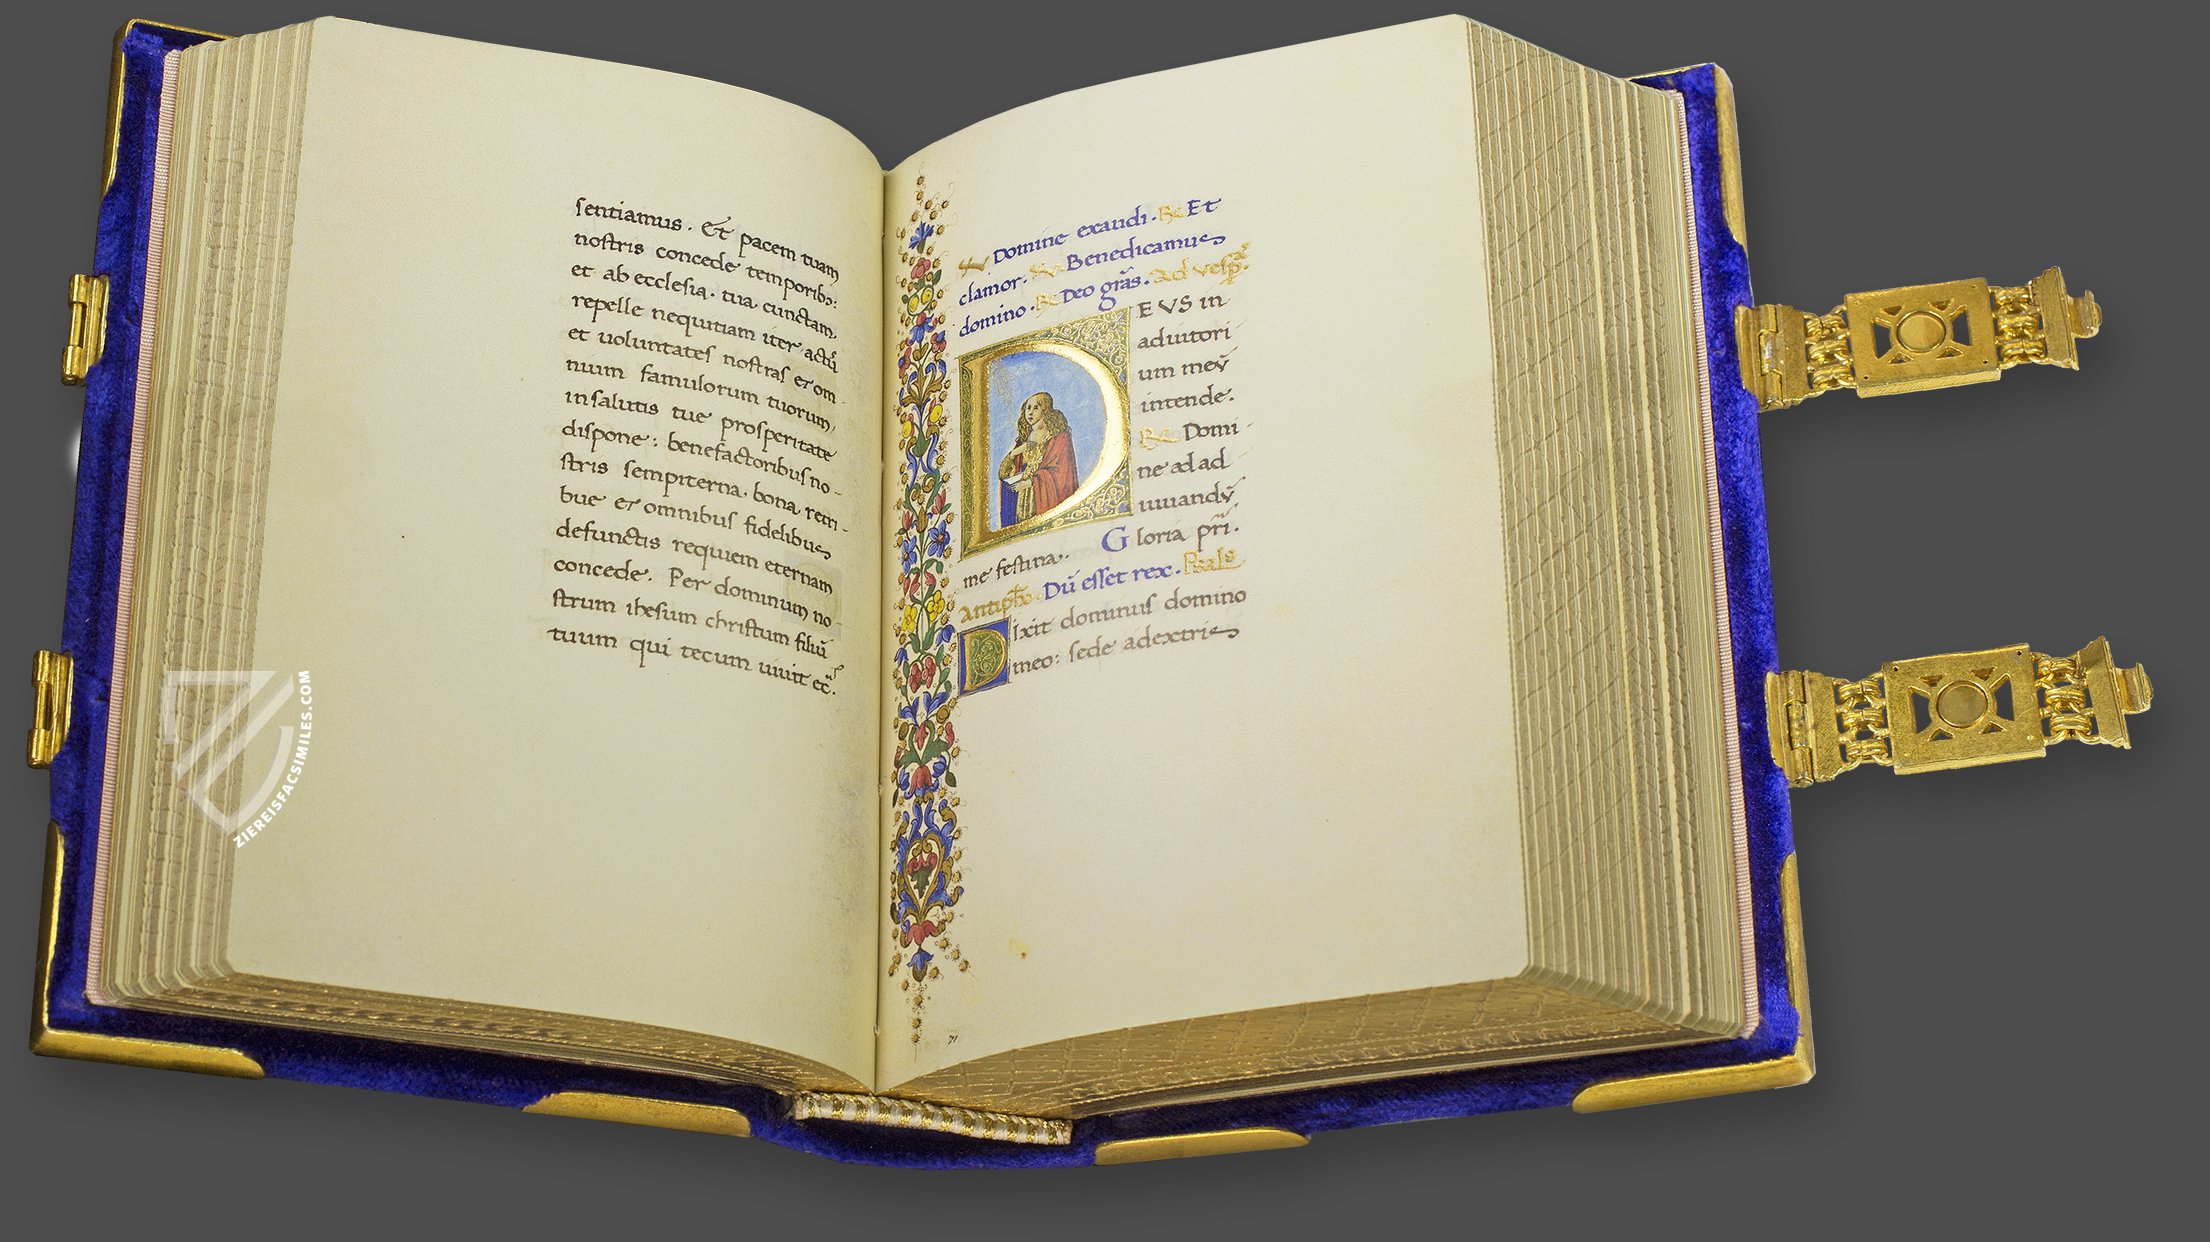 sentiamus. Et pacem tuam
nostris concede temporibꝫ:
et ab ecclesia. tua cunctam.
repelle nequitiam iter actꝰ
et uoluntates nostras et om-
nium famulorum tuorum.
in salutis tue prosperitate
dispone: benefactoribus no-
stris sempiterna. bona retri-
bue et omnibus fidelibus
defunctis requiem eternam
concede. Per dominum no-
strum ihesum christum filiū
tuum qui tecum uiuit ec̄.
℣ Domine exaudi. ℟ Et
clamor. ℣ Benedicamus
domino. ℟ Deo gr̄as. Ad vesp̄.
DEVS in
adiutori
um meū
intende.
℟ Domi-
ne ad ad
iuuandū
me festina. Gloria pr̄i.
Antiph̄o. Dū esset rex. Psal̄s
Dixit dominus domino
meo: sede adextris
71
ZIEREISFACSIMILES.COM